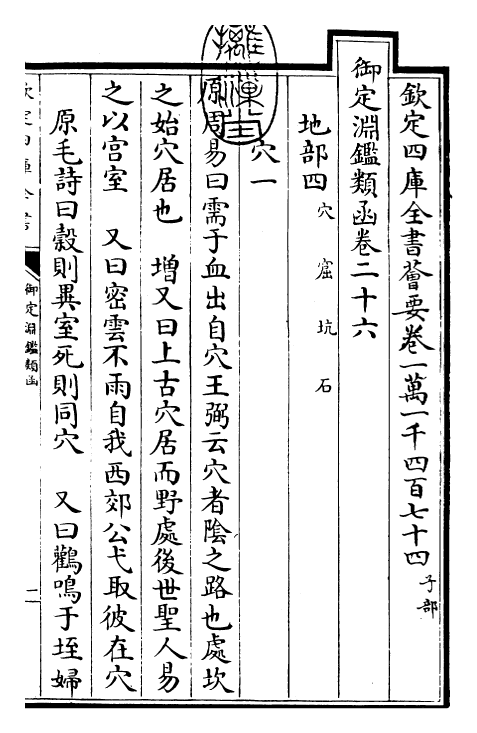 欽定四庫全書薈要卷一萬一千四百七十四子部
御定淵鑑類函卷二十六
地部四穴窟坑石
穴一
原周易曰需于血出自穴王弼云穴者陰之路也處坎
之始穴居也 增又曰上古穴居而野處後世聖人易
之以宫室 又曰密雲不雨自我西郊公弋取彼在穴
原毛詩曰穀則異室死則同穴 又曰鸛鳴于垤婦
欽定四庫全書
御定淵鑑類函